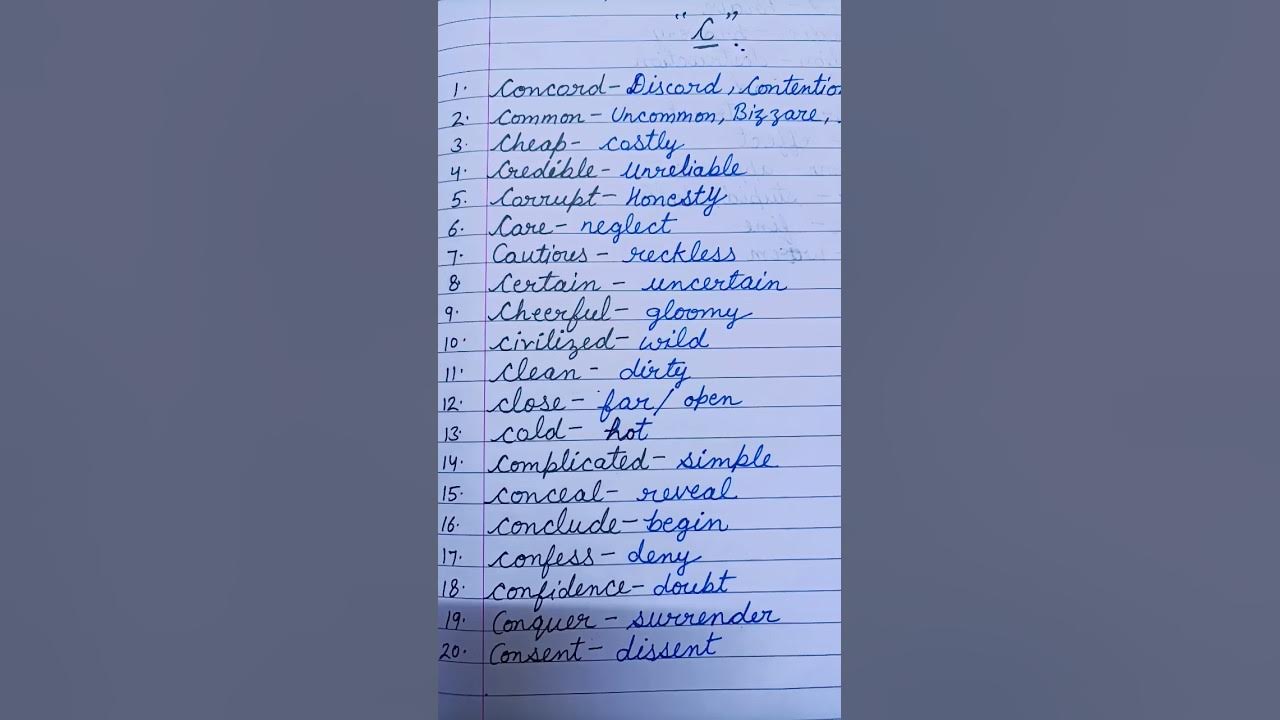 "C" :
1. Concord - Discord, Contention
2. Common - Uncommon, Bizzare,
3. Cheap - costly
4. Credible - Unreliable
5. Corrupt - Honesty
6. Care - neglect
7. Cautious - reckless
8. Certain - uncertain
9. Cheerful - gloomy
10. civilized - wild
11. clean - dirty
12. close - far / open
13. cold - hot
14. complicated - simple
15. conceal - reveal
16. conclude - begin
17. confess - deny
18. confidence - doubt
19. Conquer - surrender
20. Consent - dissent